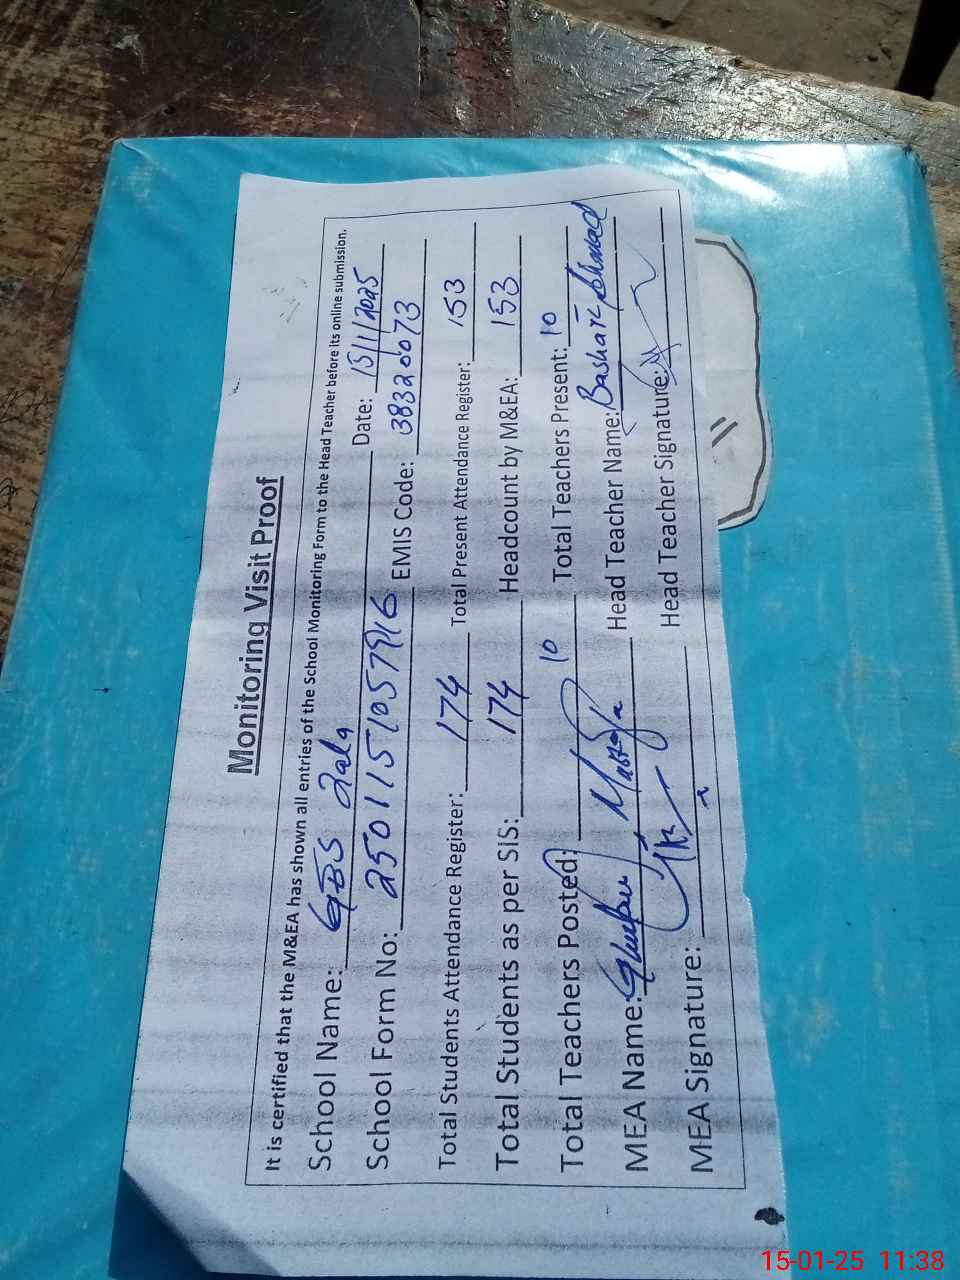 Monitoring Visit Proof
It is certified that the M&EA has shown all entries of the School Monitoring Form to the Head Teacher before its online submission.
School Name: GBS Date: 15/1/2025
School Form No: 2501151057916 EMIS Code: 38320073
Total Students Attendance Register: 174 Total Present Attendance Register: 153
Total Students as per SIS: 174 Headcount by M&EA: 153
Total Teachers Posted: 10 Total Teachers Present: 10
MEA Name: Ghulam Mustafa Head Teacher Name: Basharat Ahmad
MEA Signature: Head Teacher Signature:
15-01-25 11:38